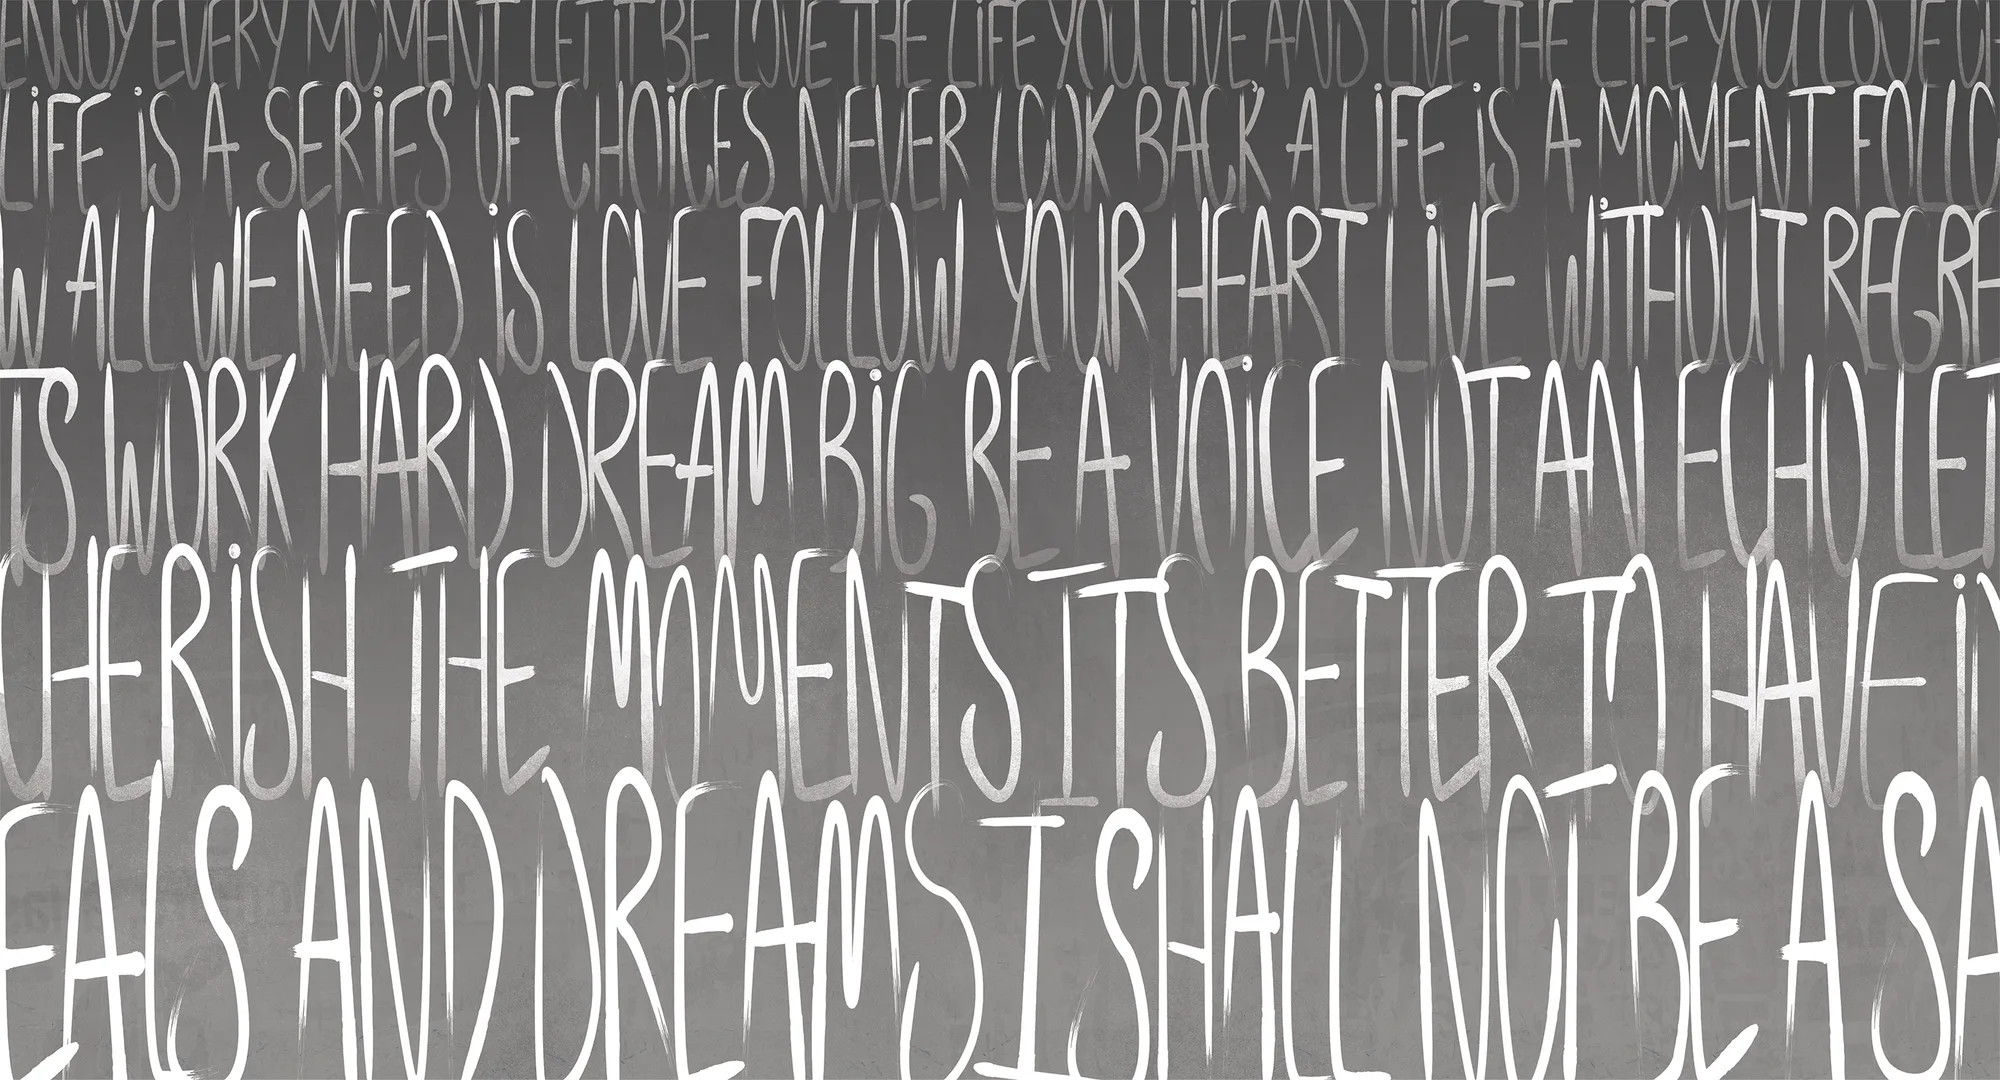 ENJOY EVERY MOMENT LET IT BE LOVE THE LIFE YOU LIVE AND LIVE THE LIFE YOU LOVE CH
LIFE IS A SERIES OF CHOICES NEVER LOOK BACK A LIFE IS A MOMENT FOLLO
W ALL WE NEED IS LOVE FOLLOW YOUR HEART LIVE WITHOUT REGRE
TS WORK HARD DREAM BIG BE A VOICE NOT AN ECHO LET
CHERISH THE MOMENTS ITS BETTER TO HAVE I
EALS AND DREAMS I SHALL NOT BE A SA